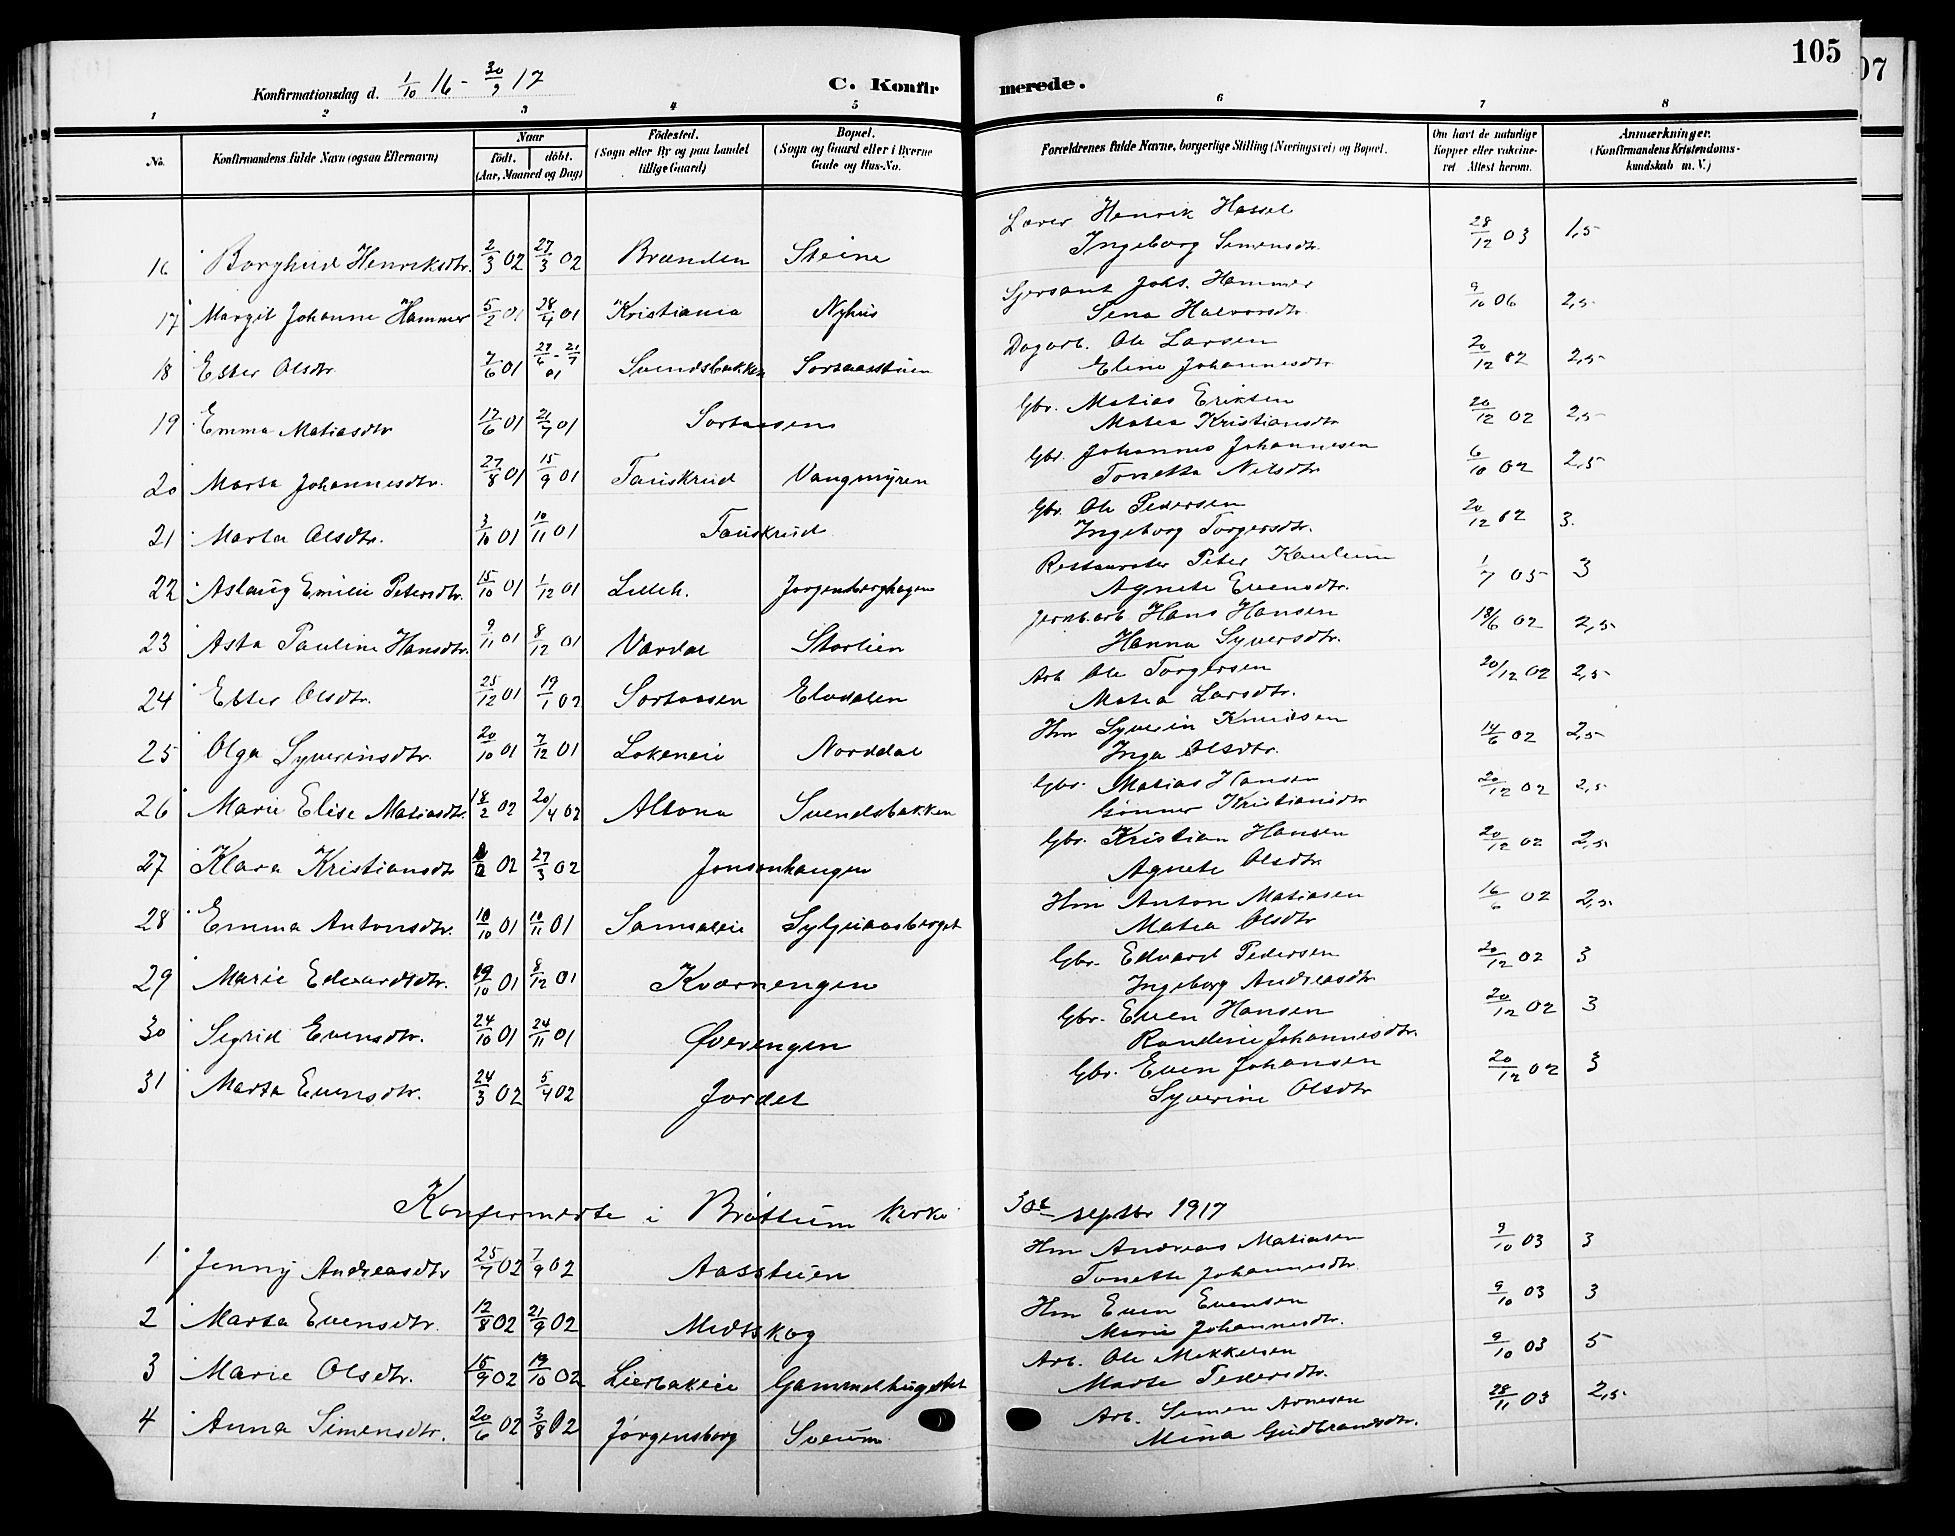 105
07
Konfirmationsdag d. 1/10 16 - 30/9 17
C. Konfir merede.
1 2 3 4 5 6 7 8
No. Konfirmandens fulde Navn (ogsaa Efternavn) Naar født, døbt. (Aar, Maaned og Dag) Fødested. (Sogn eller By og paa Landet tillige Gaard) Bopæl. (Sogn og Gaard eller i Byerne Gade og Hus-No. Forældrenes fulde Navne, borgerlige Stilling (Næringsvei) og Bopæl. Om havt de naturlige Kopper eller vakcineret Attest herom. Anmærkninger. (Konfirmandens Kristendomskundskab m. V.)
16 Borghild Henriksdtr. 2/3 02 27/3 02 Brænden Steine Lærer Henrik Hassel 28/12 03 1,5
Ingeborg Simensdtr.
17 Margit Johanne Hammer 5/2 01 28/4 01 Kristiania Nyhus Sjersant Johs. Hammer 9/10 06 2,5
Sena Halvorsdtr.
18 Ester Olsdtr. 7/6 01 27/6 - 21/7 01 Svendsbakken Sorsaasstuen Dagarb. Ole Larsen 20/12 02 2,5
Eline Johannesdtr.
19 Emma Matiasdtr 17/6 01 21/7 01 Sortaasen Gbr. Matias Eriksen 20/12 02 2,5
Matea Kristiansdtr
20 Marta Johannesdtr. 27/8 01 15/9 01 Tauskrud Vangmyren Gbr. Johannes Johannesen 6/10 02 2,5
Tonetta Nilsdtr
21 Marta Olsdtr. 3/10 01 10/11 01 Tauskrud Gbr. Ole Pedersen 20/12 02 3.
Ingeborg Torgersdtr.
22 Aslaug Emilie Petersdtr. 15/10 01 1/12 01 Lilleh. Jørgensberghagen Restauratør Peter 1/7 05 3
Agnete Evensdtr.
23 Asta Pauline Hansdtr. 9/11 01 8/12 01 Vardal Storlien Jernb.arb Hans Hansen 18/6 02 2,5
Hanna Syversdtr.
24 Ester Olsdtr. 25/12 01 19/1 02 Sortaasen Elvdalen Arb Ole Torgersen 20/12 02 2,5
Matea Larsdtr.
25 Olga Syverinsdtr. 20/10 01 7/12 01 Lokeneie Norddal Hm Syverin Knudsen 14/6 02 2,5
Inga Olsdtr.
26 Marie Elise Matiasdtr. 18/2 02 20/4 02 Altona Svendsbakken Gbr. Matias Hansen 20/12 02 2,5
Gunner Kristiansdtr
27 Klara Kristiansdtr 02 27/3 02 Jonsonhaugen Gbr. Kristian Hansen 20/12 02 2,5
Agnete Olsdtr
28 Emma Antonsdtr. 10/10 01 10/11 01 Samsaleie Syljuaasberget Hm Anton Matiasen 16/6 02 2,5
Matea Olsdtr
29 Marie Edvardsdtr. 19/10 01 8/12 01 Kværnengen Gbr. Edvard Pedersen 20/12 02 3
Ingeborg Andreasdtr
30 Sigrid Evensdtr. 24/10 01 24/11 01 Øverengen Gbr. Even Hansen 20/12 02 3
Randine Johannesdtr.
31 Marta Evensdtr. 24/3 02 5/4 02 Jordet Gbr. Even Johansen 20/12 02 3
Syverine Olsdtr
Konfirmerte i Brøttum kirke 30te septbr 1917
1 Jenny Andreasdtr 25/7 02 7/9 02 Aasstuen Hm Andreas Matiasen 9/10 03 3
Tonette Johannesdtr
2 Marta Evensdtr. 12/8 02 21/9 02 Midtskog Hm Even Evensen 9/10 03 3
Marie Johannesdtr.
3 Marie Olsdtr. 15/9 02 19/10 02 Lierbakeie Gammelhugstet Arb. Ole Mikkelsen 9/10 03 5
Marte Pedersdtr.
4 Anna Simensdtr. 20/6 02 3/8 02 Jørgensberg Sveum Arb. Simen Arnesen 28/11 03 2,5
Mina Gudbrandsdtr.